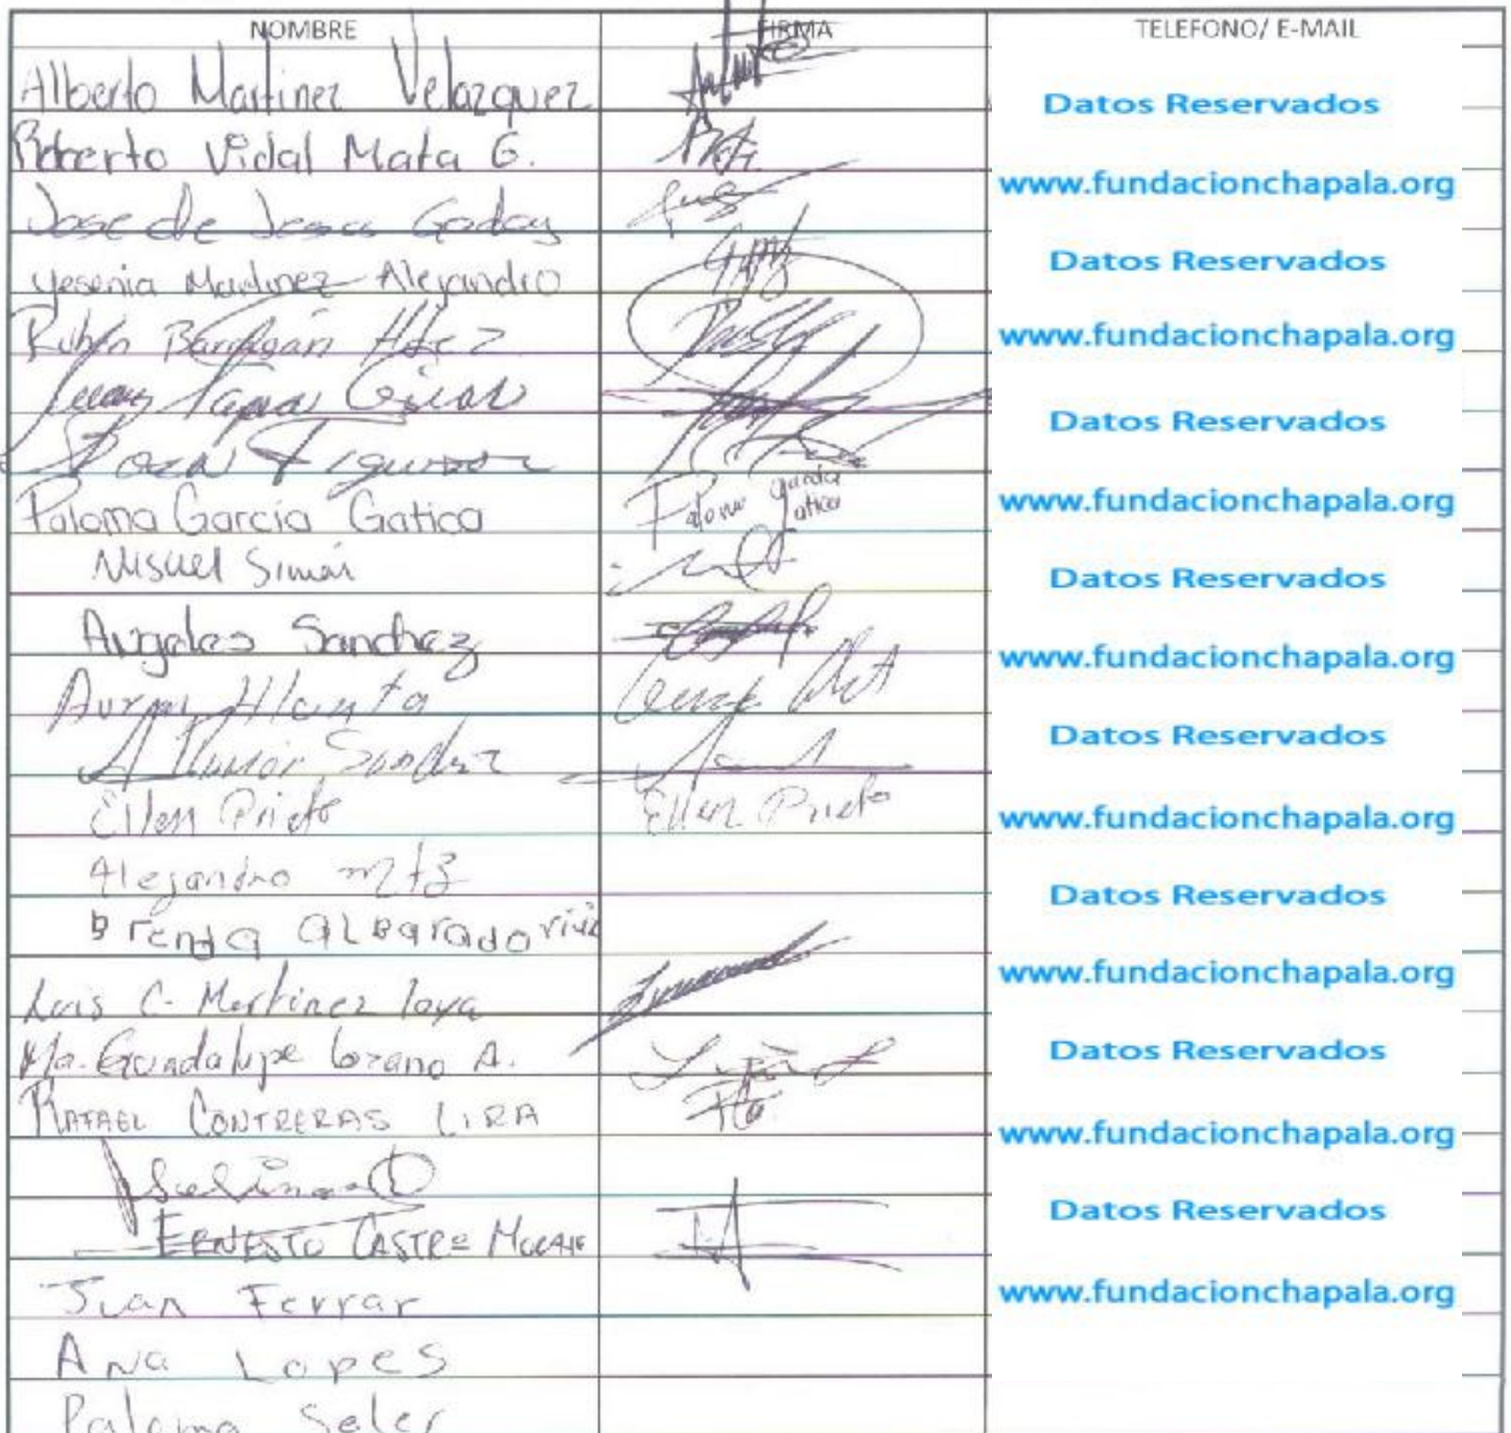 NOMBRE FIRMA TELEFONO/ E-MAIL
Alberto Martinez Velazquez
Datos Reservados
Roberto Vidal Mata G.
www.fundacionchapala.org
Jose de Jesus Godoy
Datos Reservados
Yesenia Martinez Alejandro
Ruben Barragán Hdez
www.fundacionchapala.org
Juan Tapia
Datos Reservados
Figueroa
Paloma Garcia Gatica Paloma Garcia Gatica
www.fundacionchapala.org
Miguel Simón
Datos Reservados
Angeles Sanchez
www.fundacionchapala.org
Sanchez
Datos Reservados
Ellen Prieto Ellen Prieto
www.fundacionchapala.org
Alejandro mtz
Datos Reservados
Brenda albarado
Luis C. Martinez loya
www.fundacionchapala.org
Ma. Guadalupe Lozano A.
Datos Reservados
RAFAEL CONTRERAS LIRA
www.fundacionchapala.org
Datos Reservados
ERNESTO CASTRO
Juan Ferrar
www.fundacionchapala.org
Ana Lopes
Paloma Seler